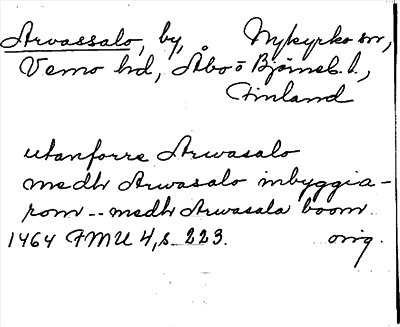 Arvassalo, by, Nykyrko sn,
Vemo hd, Åbo o Björneb. l.,
Finland
utanforre Arwasalo
medh Arwasalo inbyggia-
rom -- medh Arwasala boom
1464 FMU 4, s. 223. orig.